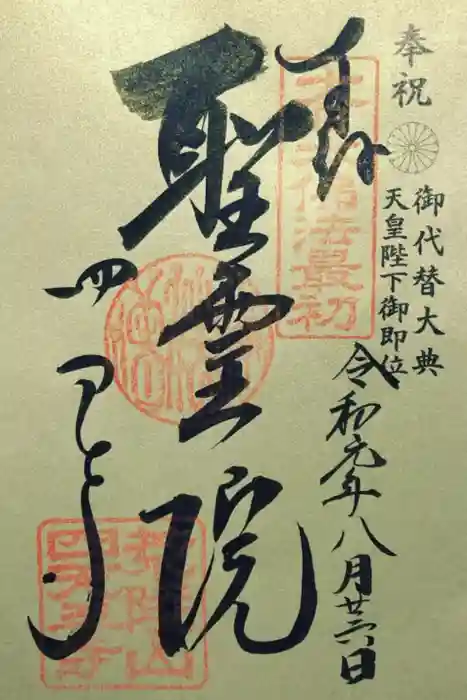 奉祝
御代替大典
天皇陛下御即位
令和元年八月廿六日
奉拝
大日本佛法最初
聖霊院
四天王寺
荒陵山
四天王寺